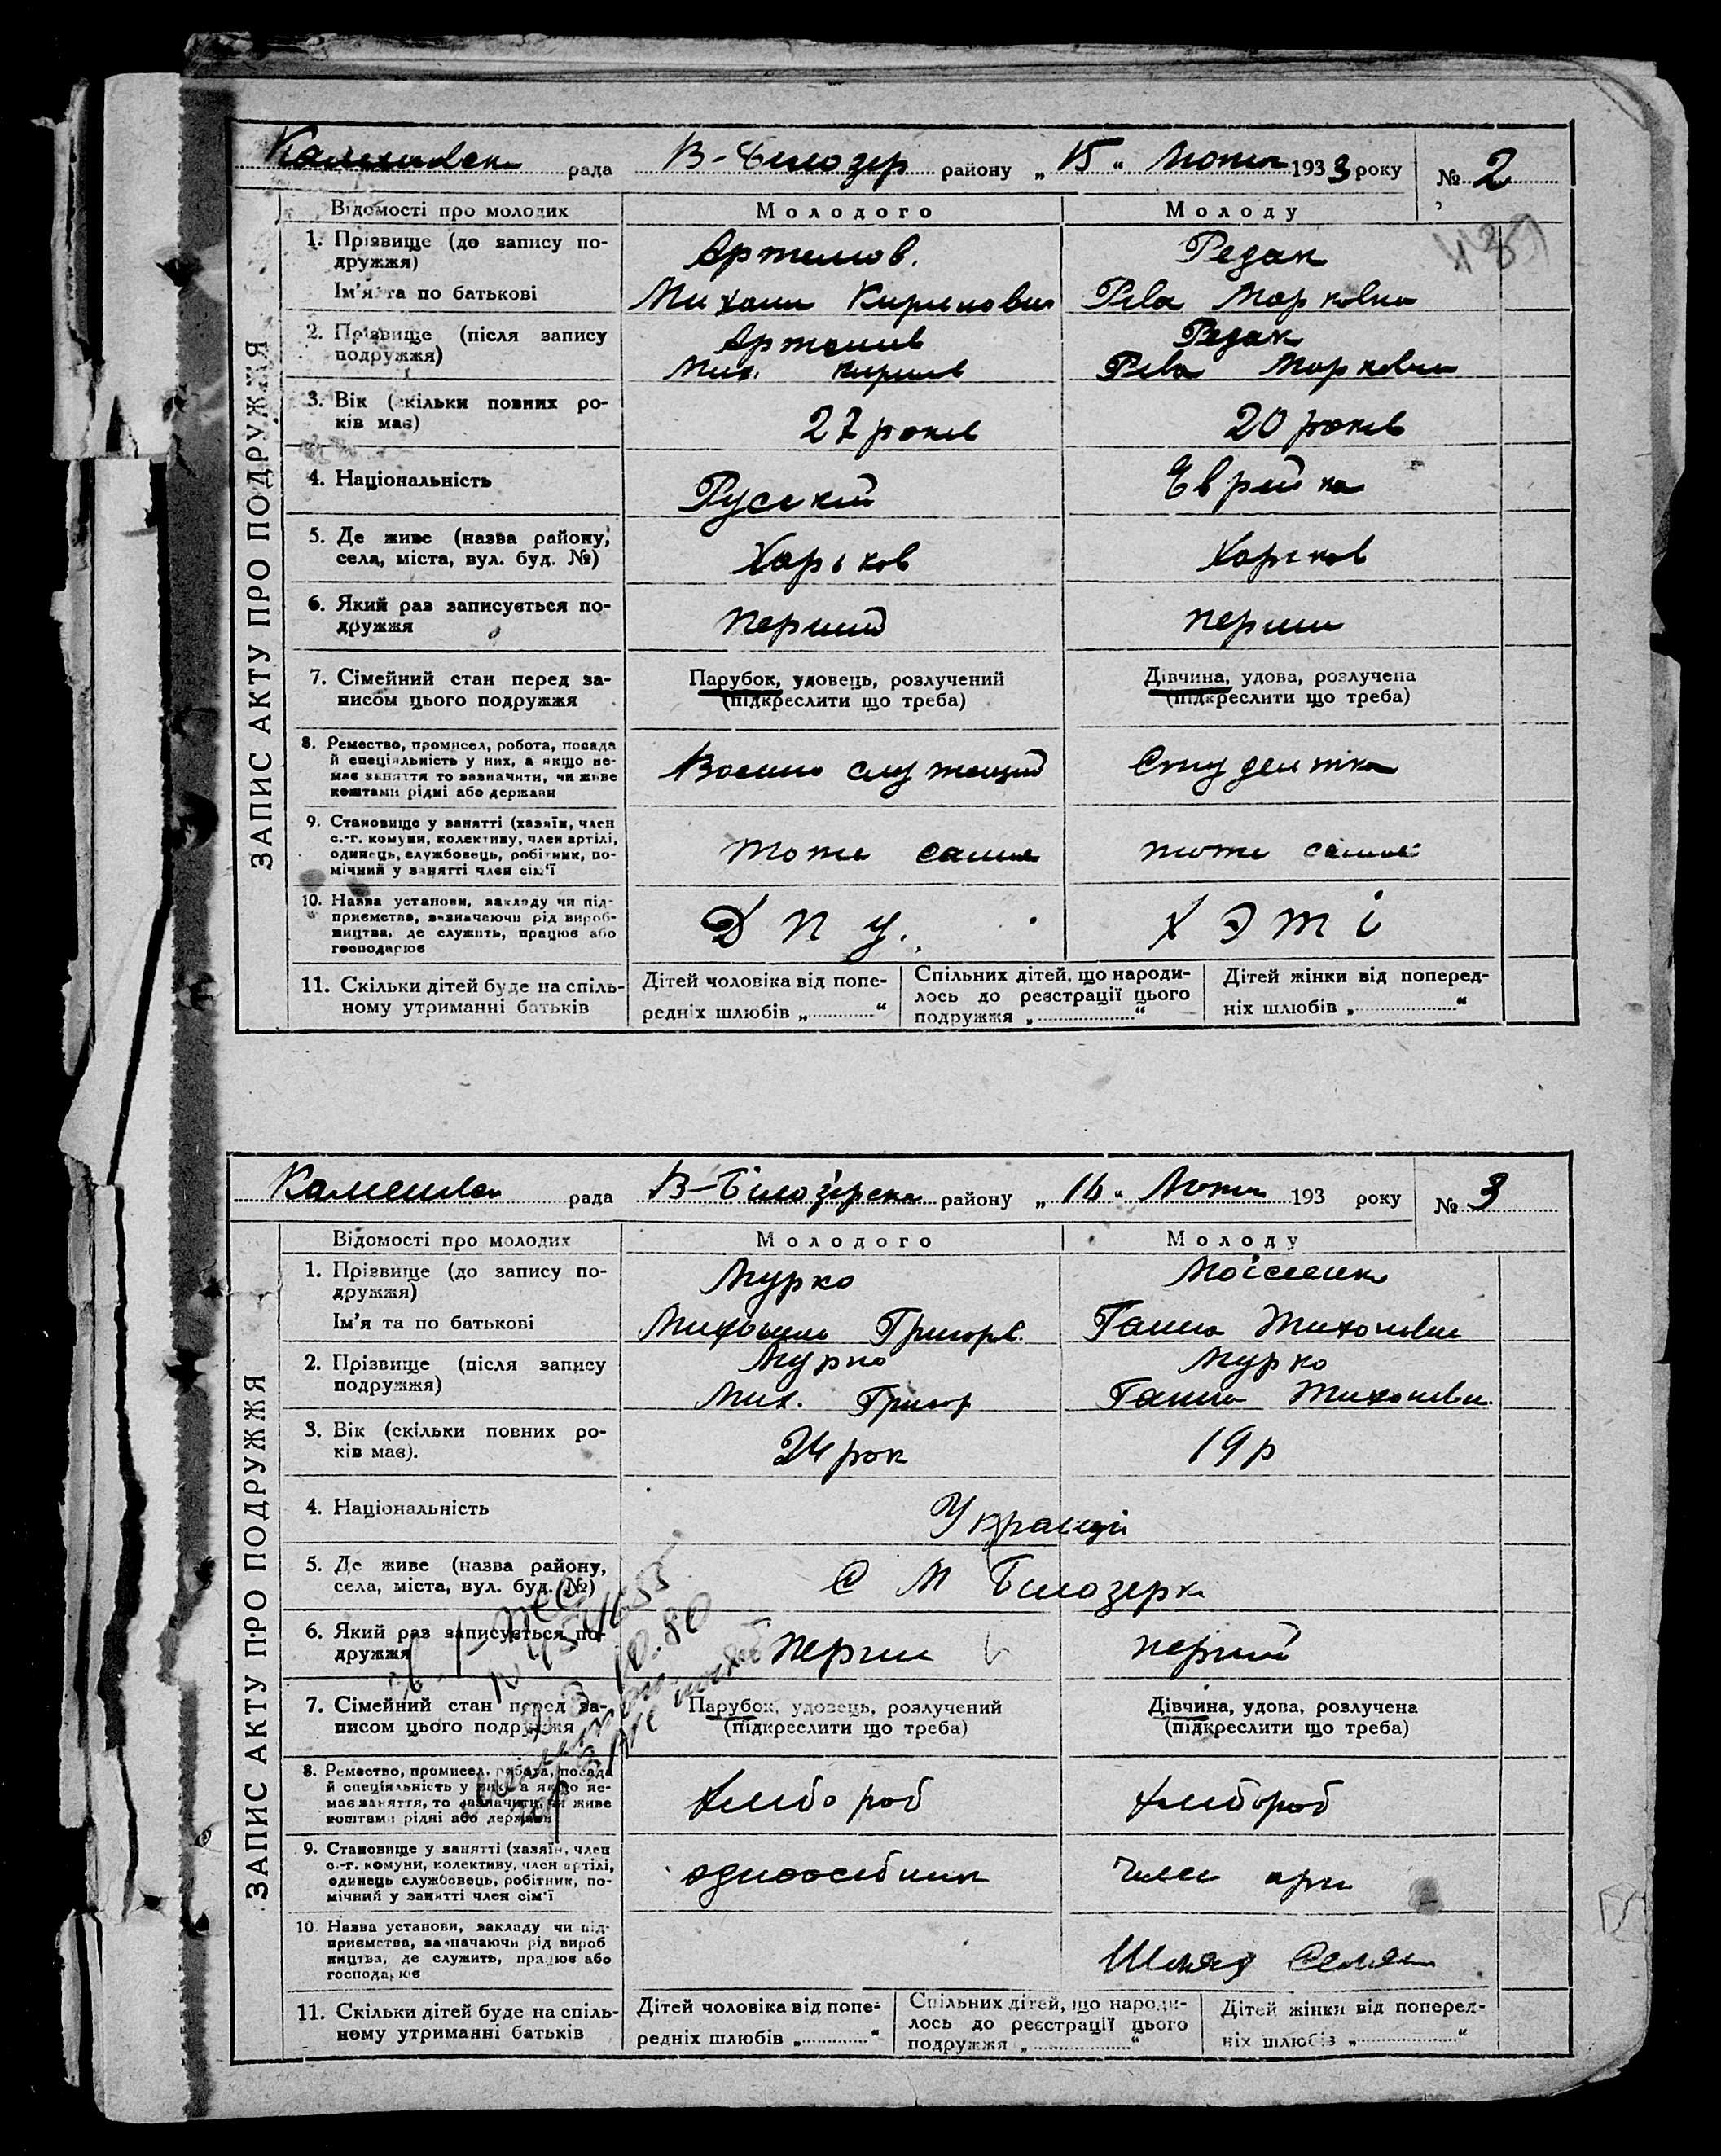 рада В-Білозер району „15“ Лютого 1933 року № 2
Відомості про молодих Молодого Молоду
1. Прізвище (до запису по-
дружжя)
Артемов. Редак
Ім'я та по батькові Михаил Кирилович Рева Марковна
2. Прізвище (після запису
подружжя)
Артемов Редак
Мих. Кирилов Рева Марковна
3. Вік (скільки повних ро-
ків має)
27 років 20 років
4. Національність Руский Єврейка
5. Де живе (назва району,
села, міста, вул. буд. №)
Харьков Харьков
6. Який раз записується по-
дружжя
Перший перши
7. Сімейний стан перед за-
писом цього подружжя
Парубок, удовець, розлучений
(підкреслити що треба)
Дівчина, удова, розлучена
(підкреслити що треба)
8. Ремество, промисел, робота, посада
й спеціяльність у них, а якщо не-
має заняття то зазначити, чи живе
коштами рідні або держави
Военно служащий Студентка
9. Становище у занятті (хазяїн, член
с.-г. комуни, колективу, член артілі,
одинець, службовець, робітник, по-
мічний у занятті член сім'ї
тоже саме тоже саме
10. Назва установи, закладу чи під-
приємства, зазначаючи рід вироб-
ництва, де служить, працює або
господарює
Д П У. Х Э Т І
11. Скільки дітей буде на спіль-
ному утриманні батьків
Дітей чоловіка від попе-
редніх шлюбів „ “
Спільних дітей, що народи-
лось до реєстрації цього
подружжя „ “
Дітей жінки від поперед-
ніх шлюбів „ “
ЗАПИС АКТУ ПРО ПОДРУЖЖЯ
рада В-Білозірска району „16“ Лютого 193 року № 3
Відомості про молодих Молодого Молоду
1. Прізвище (до запису по-
дружжя)
Мурко Моісеенко
Ім'я та по батькові Григоров. Ганна Тихоновна
2. Прізвище (після запису
подружжя)
Мурко Мурко
Мих. Григор Ганна Тихоновна
3. Вік (скільки повних ро-
ків має).
24 рок 19 р
4. Національність Українці
5. Де живе (назва району,
села, міста, вул. буд. №)
С М Білозерка
6. Який раз записується по-
дружжя
перши перший
7. Сімейний стан перед за-
писом цього подружжя
Парубок, удовець, розлучений
(підкреслити що треба)
Дівчина, удова, розлучена
(підкреслити що треба)
8. Ремество, промисел, робота, посада
й спеціяльність у них, а якщо не-
має заняття, то зазначити, чи живе
коштами рідні або держави
хлібороб хлібороб
9. Становище у занятті (хазяїн, член
с.-г. комуни, колективу, член артілі,
одинець службовець, робітник, по-
мічний у занятті член сім'ї
одноосібник член арт
10. Назва установи, закладу чи під-
приємства, зазначаючи рід вироб
ництва, де служить, працює або
господарює
Шлях Селян
11. Скільки дітей буде на спіль-
ному утриманні батьків
Дітей чоловіка від попе-
редніх шлюбів „ “
Спільних дітей, що народи-
лось до реєстрації цього
подружжя „ “
Дітей жінки від поперед-
ніх шлюбів „ “
ЗАПИС АКТУ ПРО ПОДРУЖЖЯ